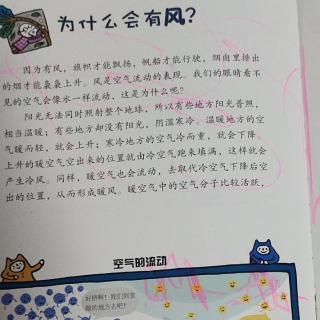 为什么会有风？
因为有风，旗帜才能飘扬，帆船才能行驶，烟囱里排出
的烟才能袅袅上升。风是空气流动的表现。我们的眼睛看不
见的空气会像水一样流动，这是为什么呢？
阳光无法同时照射整个地球，所以有些地方阳光普照，
相当温暖；有些地方却没有阳光，阴湿寒冷。温暖地方的空
气暖而轻，就会上升；寒冷地方的空气冷而重，就会下降。
上升的暖空气空出来的位置就由冷空气跑来填满，这样就会
产生冷风。同样，暖空气也会流动，去取代冷空气下降后空
出的位置，从而形成暖风。暖空气中的空气分子比较活跃，
空气的流动
好挤啊！我们到宽
敞的地方去吧！